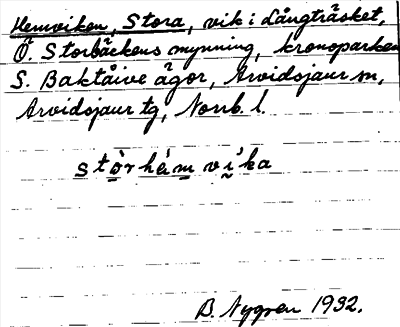 Hemviken, Stora, vik i Långträsket,
Ö. Storbäckens mynning, kronoparken
S. Baktåive ägor, Arvidsjaur sn,
Arvidsjaur tg, Norrb. l.
stòrhémvi̬ka
B. Nygren 1932.